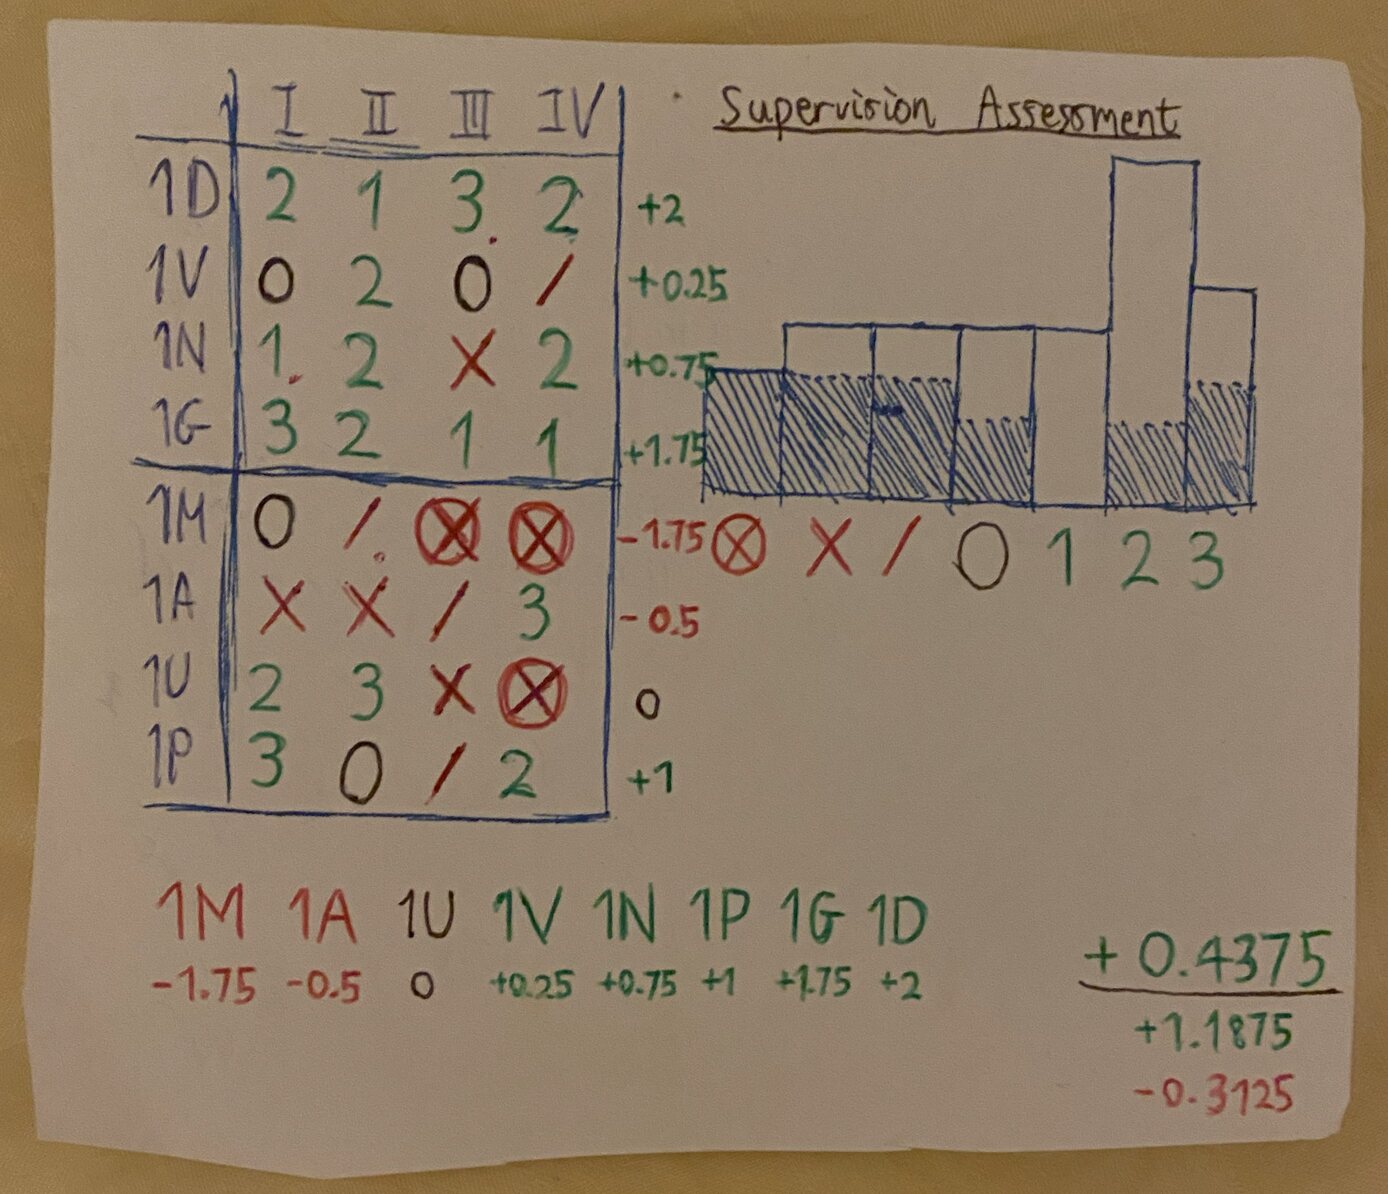 Supervision Assessment
I II III IV
1D 2 1 3 2 +2
1V 0 2 0 / +0.25
1N 1 2 X 2 +0.75
1G 3 2 1 1 +1.75
1M 0 / ⊗ ⊗ -1.75
1A X X / 3 -0.5
1U 2 3 X ⊗ 0
1P 3 0 / 2 +1
⊗ X / 0 1 2 3
1M 1A 1U 1V 1N 1P 1G 1D
-1.75 -0.5 0 +0.25 +0.75 +1 +1.75 +2
+0.4375
+1.1875
-0.3125